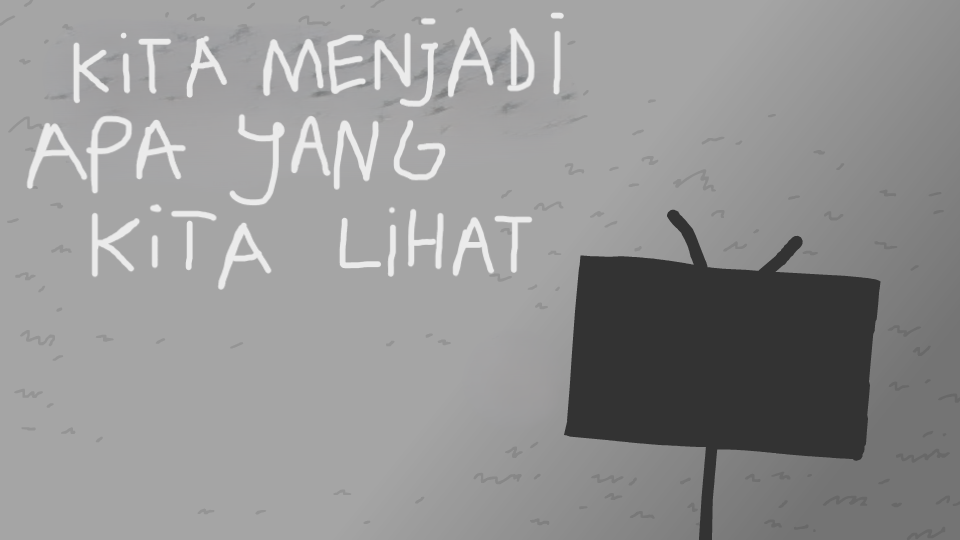 KiTA MENjADi
APA YANG
KiTA LiHAT